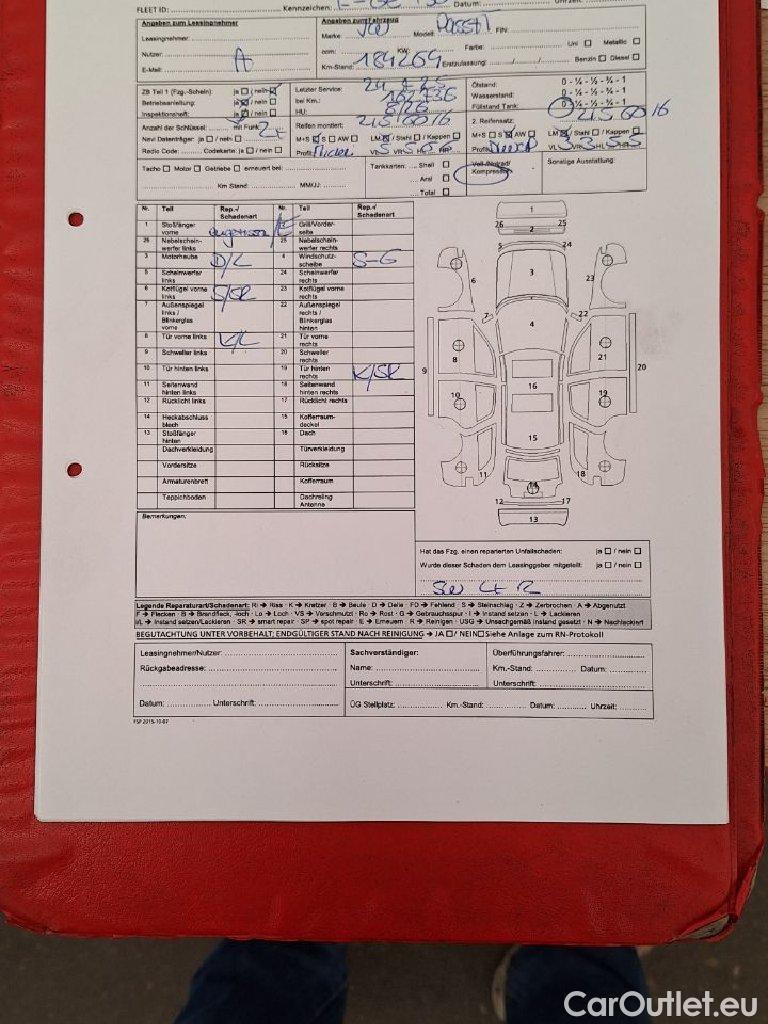 FLEET ID: Kennzeichen: Datum:
Angaben zum Leasingnehmer
Angaben zum Fahrzeug
Leasingnehmer:
Marke VW Model: Passat FIN:
Nutzer: A
ccm: KW: Farbe: Uni Metallic
E-Mail:
Km-Stand: 184264 Erstzulassung: Benzin Diesel
ZB Teil 1 (Fzg.-Schein): ja / nein
Betriebsanleitung: ja / nein
Inspektionsheft: ja / nein
Letzter Service:
bei Km.:
HU:
Ölstand: 0 - ¼ - ½ - ¾ - 1
Wasserstand: 0 - ¼ - ½ - ¾ - 1
Füllstand Tank: 0 - ¼ - ½ - ¾ - 1
Anzahl der Schlüssel: mit Funk: 2x
Navi Datenträger: ja / nein
Radio Code: Codekarte: ja / nein
Reifen montiert: 215 60 16
M+S S AW LM / Stahl / Kappen
Profil: VL 5 VR 5 HL 5 HR
2. Reifensatz: 215 60 16
M+S S AW LM / Stahl / Kappen
Profil: VL 3 VR 3 HL 5 HR 5
Tacho Motor Getriebe erneuert bei:
Km Stand: MM/JJ:
Tankkarten: Shell
Aral
Total
Voll-/Notrad/
Kompressor
Sonstige Ausstattung:
Nr. Teil Rep.-/ Schadenart Nr. Teil Rep.-/ Schadenart
1 Stoßfänger vorne Grill/Vorderseite
26 Nebelscheinwerfer links 25 Nebelscheinwerfer rechts
3 Motorhaube D/L 4 Windschutzscheibe S-G
5 Scheinwerfer links 24 Scheinwerfer rechts
6 Kotflügel vorne links S/SR 23 Kotflügel vorne rechts
7 Außenspiegel links / Blinkerglas vorne 22 Außenspiegel rechts / Blinkerglas hinten
8 Tür vorne links K/L 21 Tür vorne rechts
9 Schweller links 20 Schweller rechts
10 Tür hinten links 19 Tür hinten rechts K/SR
11 Seitenwand hinten links 18 Seitenwand hinten rechts
12 Rücklicht links 17 Rücklicht rechts
14 Heckabschlussblech 15 Kofferraumdeckel
13 Stoßfänger hinten 16 Dach
Dachverkleidung Türverkleidung
Vordersitze Rücksitze
Armaturenbrett Kofferraum
Teppichboden Dachreling Antenne
1
26 25
2
5 24
3
6 23
7 22
4
8 21
9 20
10 19
16
15
11 18
14
12 17
13
Bemerkungen:
Hat das Fzg. einen reparierten Unfallschaden: ja / nein
Wurde dieser Schaden dem Leasinggeber mitgeteilt: ja / nein
SW L+R
Legende Reparaturart/Schadenart: Ri → Riss · K → Kratzer · B → Beule · D → Delle · FD → Fehlend · S → Steinschlag · Z → Zerbrochen · A → Abgenutzt
F → Flecken · B → Brandfleck, -loch · Lo → Loch · VS → Verschmutzt · Ro → Rost · G → Gebrauchsspur · I → Instand setzen · L → Lackieren
I/L → Instand setzen/Lackieren · SR → smart repair · SP → spot repair · E → Erneuern · R → Reinigen · USG → Unsachgemäß instand gesetzt · N → Nachlackiert
BEGUTACHTUNG UNTER VORBEHALT; ENDGÜLTIGER STAND NACH REINIGUNG → JA / NEIN Siehe Anlage zum RN-Protokoll
Leasingnehmer/Nutzer: Sachverständiger: Überführungsfahrer:
Rückgabeadresse: Name: Km.-Stand: Datum:
Unterschrift: Unterschrift:
Datum: Unterschrift: ÜG Stellplatz: Km.-Stand: Datum: Uhrzeit:
CarOutlet.eu